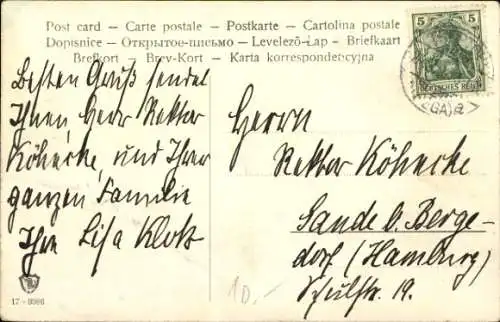 Post card – Carte postale – Postkarte – Cartolina postale
Dopisnice – Открытое-письмо – Levelezõ-Lap – Briefkaart
Brefkort – Brev-Kort – Karta korrespondencyjna
5 5
DEUTSCHES REICH
(GA)
Besten Gruß sendet
Ihnen Herr Rektor
Köhncke, und Ihrer
ganzen Familie
Ihre Lisa Klotz
Herrn
Rektor Köhncke
Sande b. Berge-
dorf (Hamburg)
Schulstr. 19.
17 - 8986
10.-